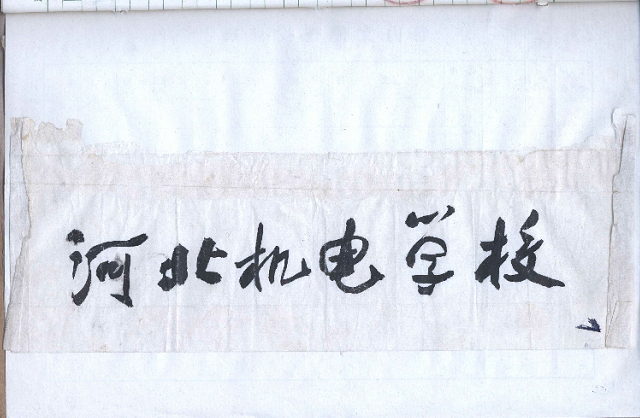 河北机电学校